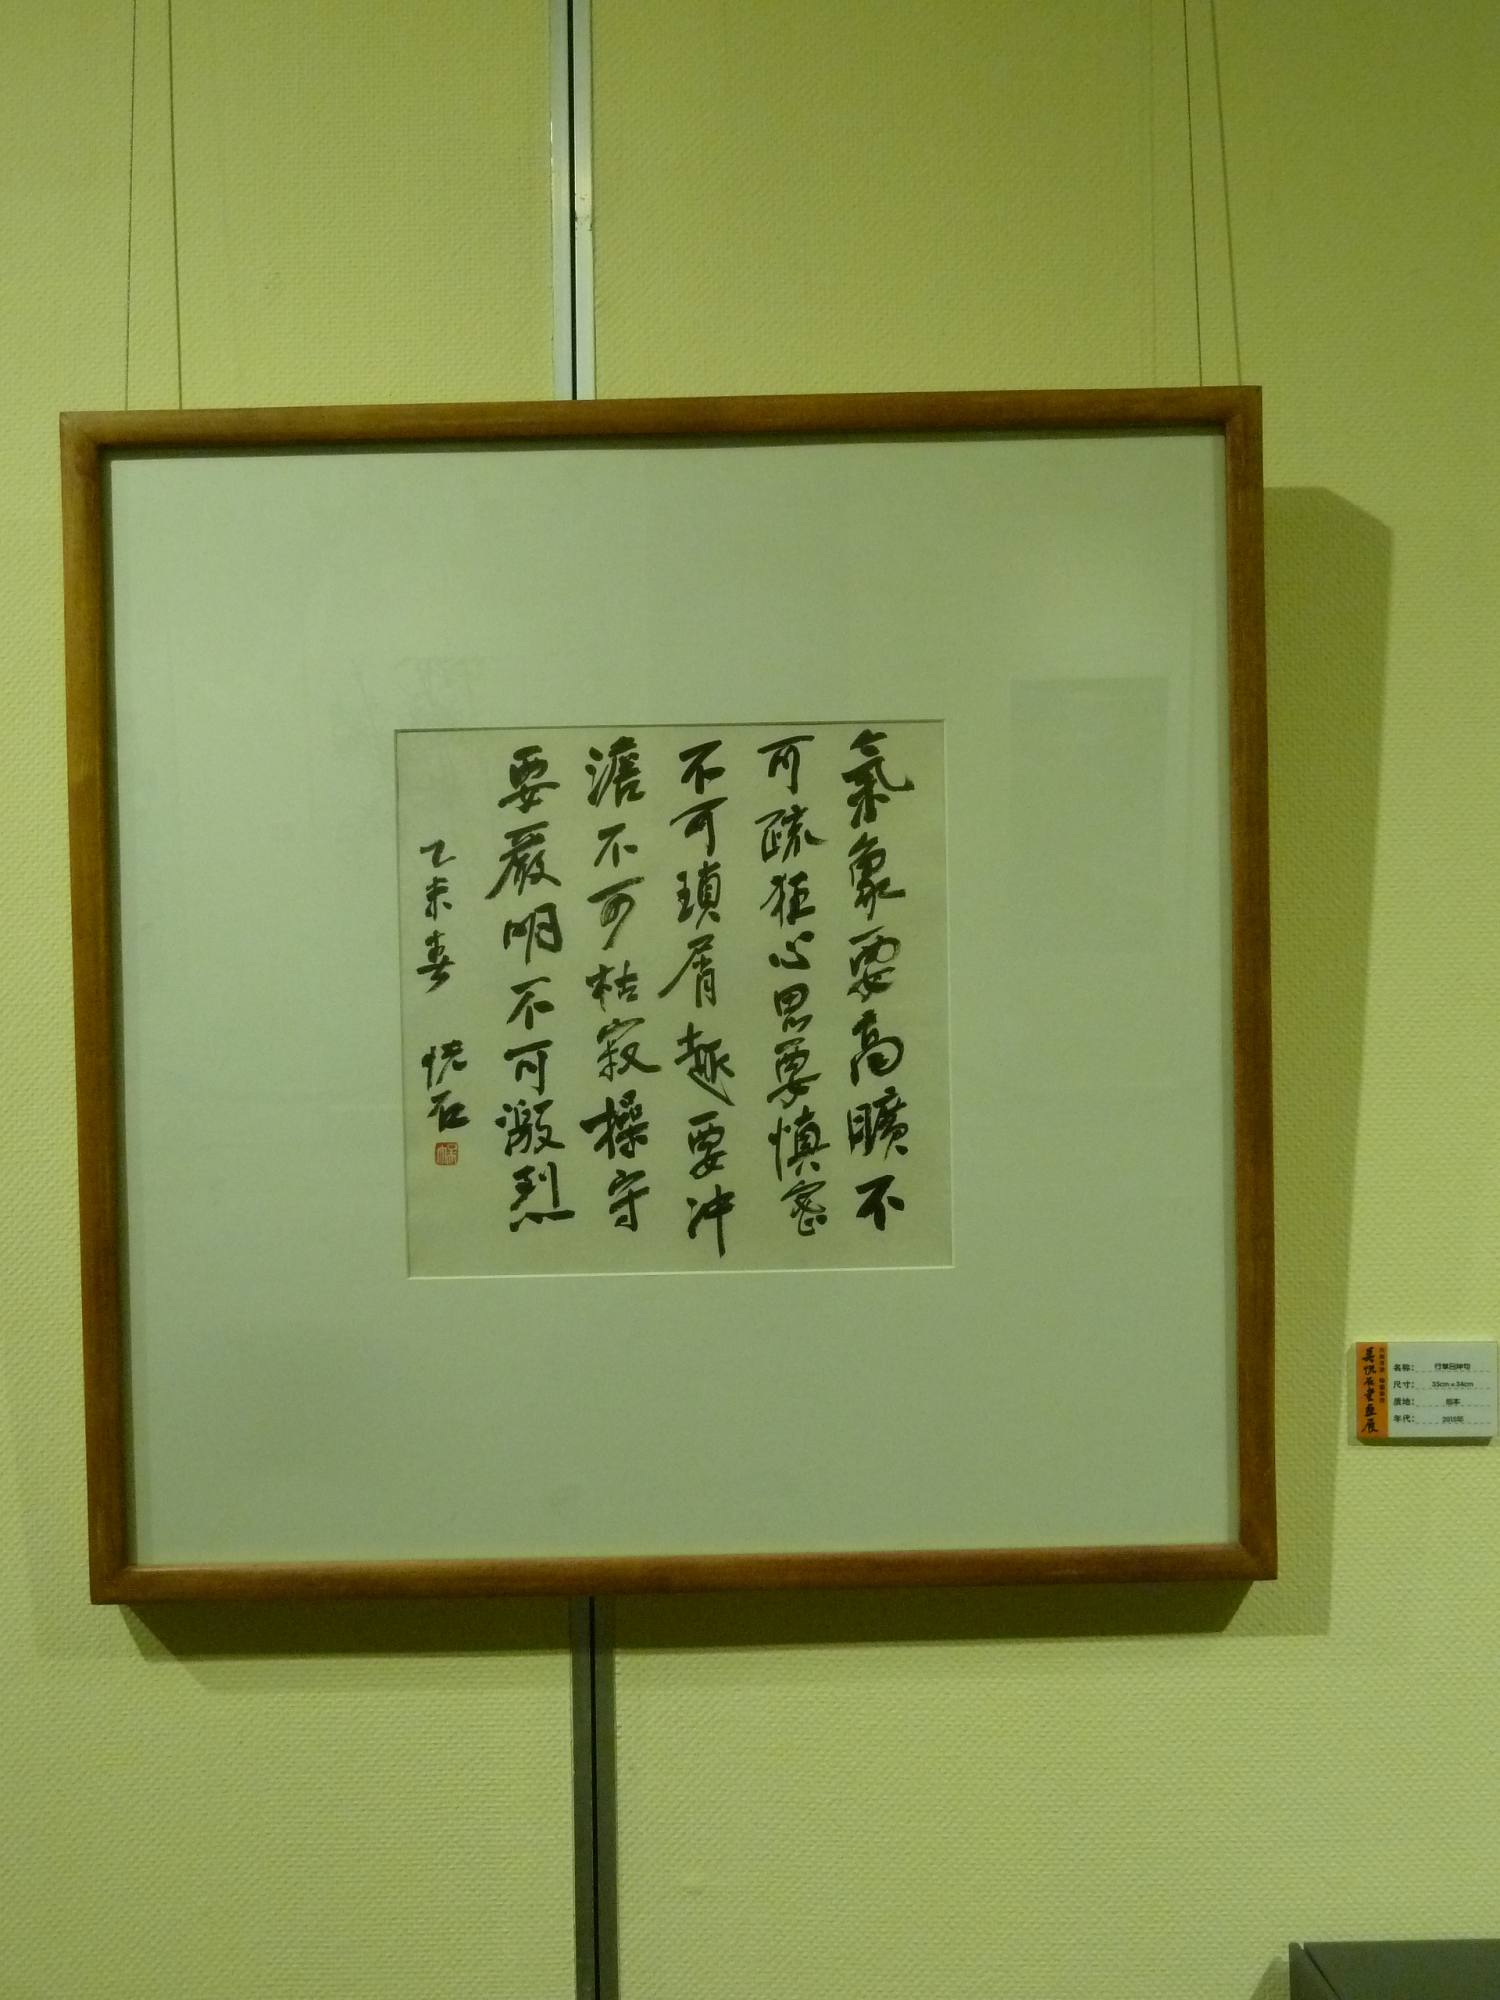 氣象要高曠不
可疏狂心思要慎密
不可瑣屑趣要沖
澹不可枯寂操守
要嚴明不可激烈
乙未春 悦石
吴悦石書画展
名称： 行草吕坤句
尺寸： 35cm×34cm
质地： 纸本
年代： 2015年